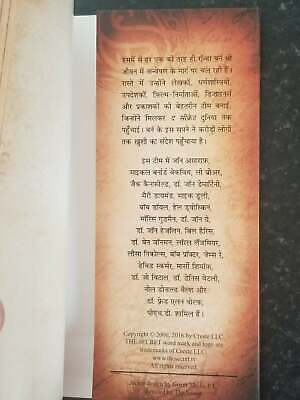 हममें से हर एक की तरह ही रॉन्डा बर्न भी
जीवन में अन्वेषण के मार्ग पर चल रही हैं।
रास्ते में उन्होंने लेखकों, धर्मशास्त्रियों,
उपदेशकों, फ़िल्म-निर्माताओं, डिज़ाइनर्स
और प्रकाशकों की बेहतरीन टीम बनाई,
जिन्होंने मिलकर द सीक्रेट दुनिया तक
पहुँचाई। बर्न के इस सपने ने करोड़ों लोगों
तक ख़ुशी का संदेश पहुँचाया है।
इस टीम में जॉन आसाराफ़,
माइकल बर्नार्ड बेकविथ, ली ब्रोअर,
जैक कैनफ़ील्ड, डॉ. जॉन डेमार्टिनी,
मैरी डायमंड, माइक डूली,
बॉब डॉयल, हेल ड्वॉस्किन,
मॉरिस गुडमैन, डॉ. जॉन ग्रे,
डॉ. जॉन हेजलिन, बिल हैरिस,
डॉ. बेन जॉनसन, लॉरल लैंजमियर,
लीसा निकोल्स, बॉब प्रॉक्टर, जेम्स रे,
डेविड स्कर्मर, मार्सी शिमॉफ़,
डॉ. जो विटाल, डॉ. डेनिस वेटली,
नील डोनाल्ड वैल्श और
डॉ. फ़्रेड एलन वोल्फ़,
पीएच.डी. शामिल हैं।
Copyright © 2006, 2016 by Creste LLC
THE SECRET word mark and logo are
trademarks of Creste LLC
www.thesecret.tv
All rights reserved.